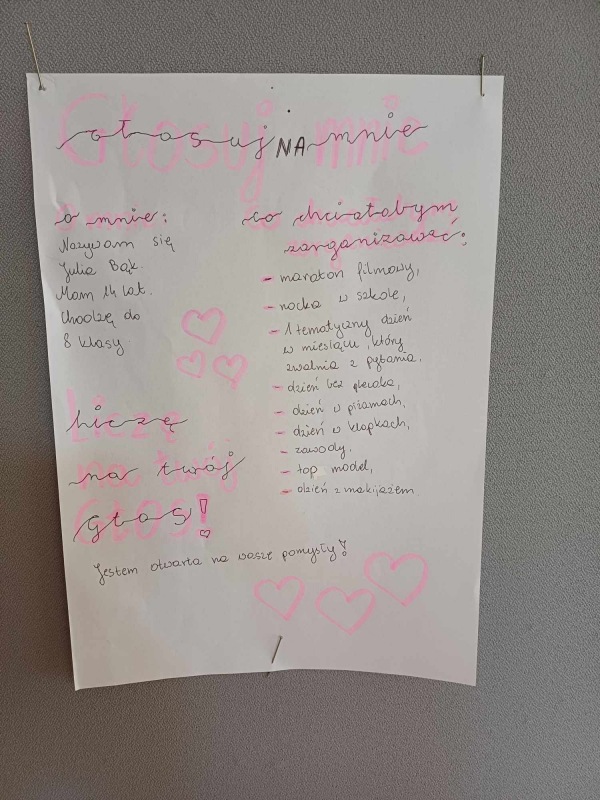 Głosuj NA mnie
O mnie:
Nazywam się
Julia Bąk.
Mam 14 lat.
Chodzę do
8 klasy
co chciałabym
zorganizować:
- maraton filmowy,
- nocka w szkole,
- 1 tematyczny dzień
w miesiącu, który
zwalnia z pytania,
- dzień bez plecaka,
- dzień w piżamach,
- dzień w klapkach,
- zawody,
- top model,
- dzień z makijażem
Liczę
na twój
GŁOS!
Jestem otwarta na wasze pomysły!